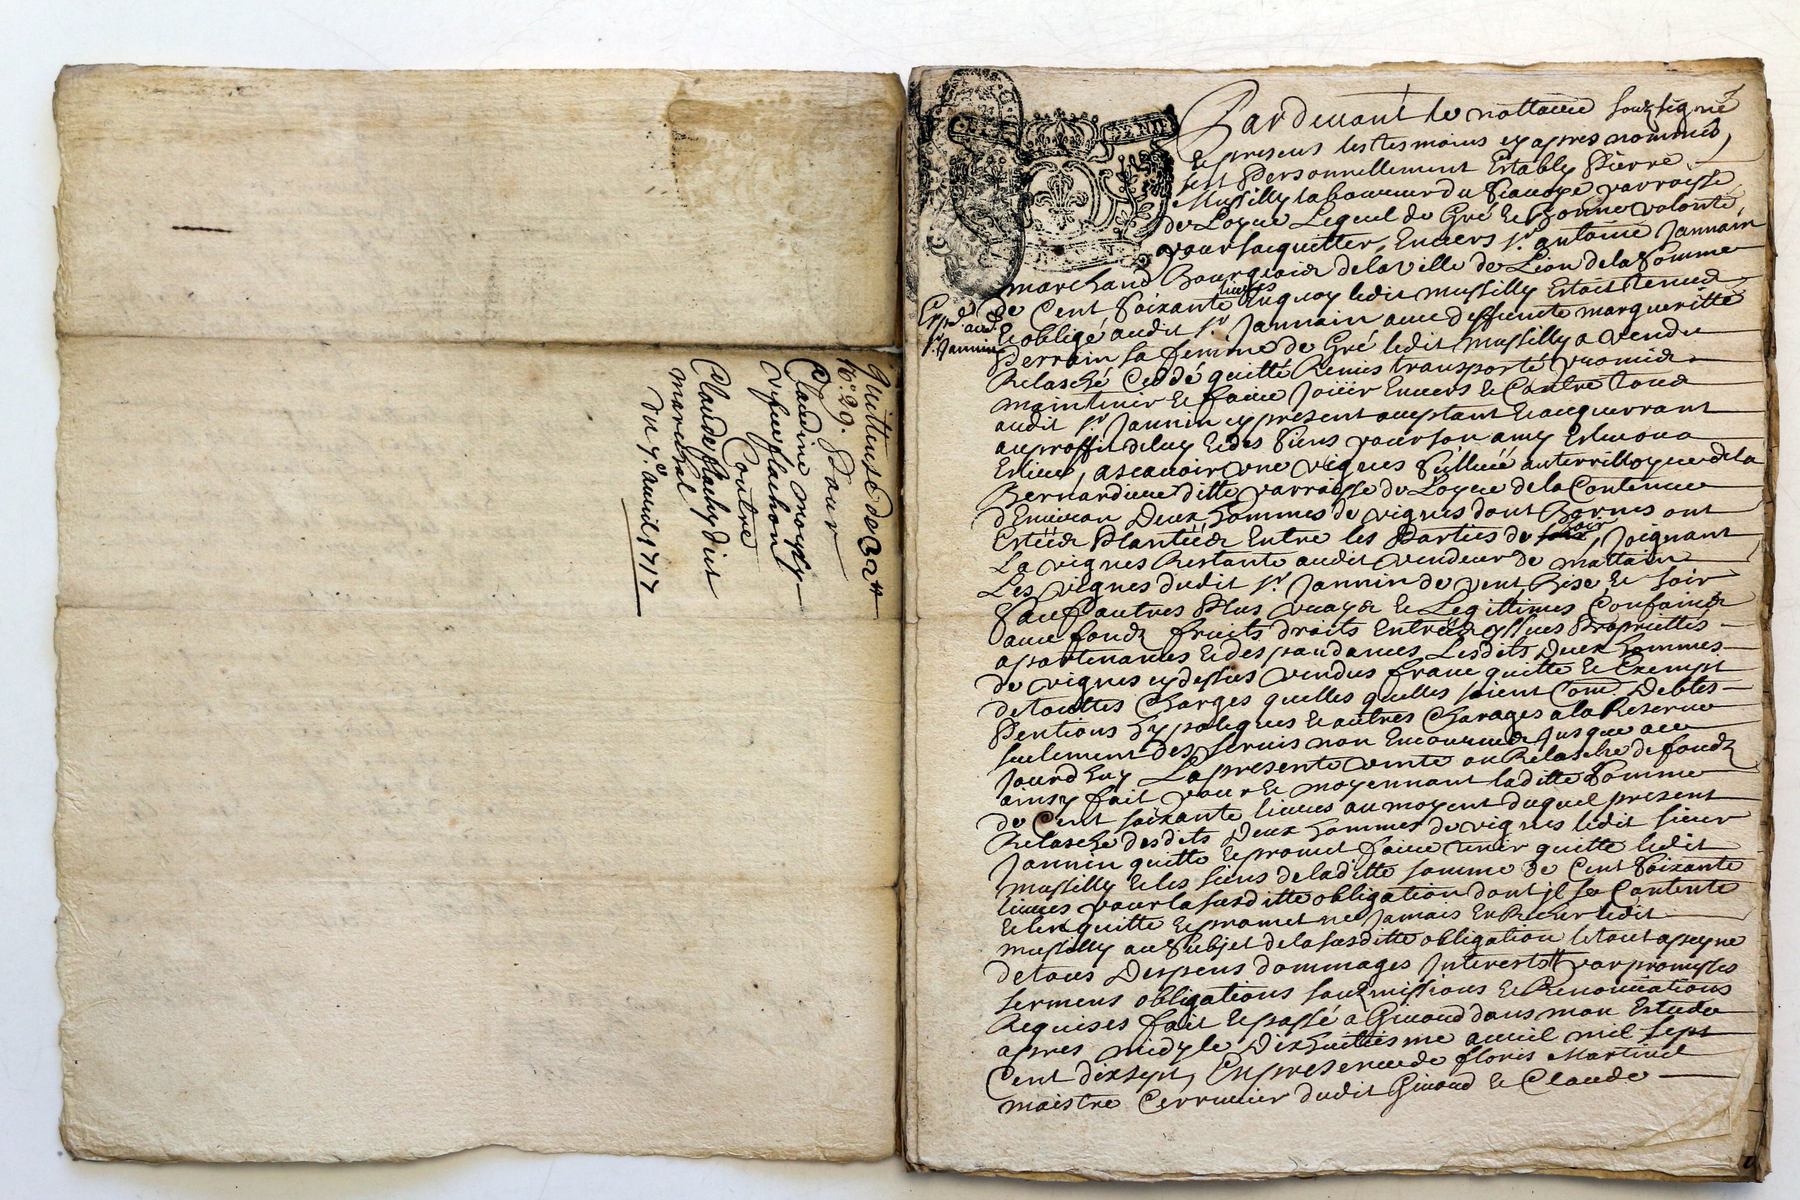 Quittance de 32tt
10s 29. d pour
Claudine
vefue flachont
Contre
Claude flachy dict
mareschal
du 7e auril 1717
Pardeuant le nottaire soubsigné
Et presens les tesmoins cy apres nommés,
fust Personnellement Estably Pierre
Mussilly laboureur du parroisse
de Loyre Lequel de Gré et bonne volonté
pour sacquitter, Enuers sr antoine Jannin
marchand Bourgeois de la ville de Lion de la somme
De Cent soixante liures Enquoy ledit mussilly Estoit tenud
Et obligé audit sr Jannin auec deffuncte margueritte
Perrin sa femme de Gré ledit Mussilly a vendu
Relasché Ceddé quitté Remis transporté promis
maintenir et faire Joüir Enuers et Contre tous
audit sr Jannin cy present acceptant et acquerrant
au proffit de luy et des siens pour son amy Esleu ou a
Eslire, ascauoir vne vignes scittuée au territtoyre de la
Bernardiere ditte parroisse de Loyre de la Contenue
d'Enuiron Deux hommes de vignes dont Bornes ont
Estéés Plantéés Entre les Parties de soir, Joignant
La vignes Restante audit vendeur de mattain
Les vignes dudit sr Jannin de vent, Bise, et soir
Sauf d'autres Plus vrays et Legittimes Confains
auec fonds fruits droits Entréés yssues Proprietes
apartenances et despandances Lesdits Deux hommes
de vignes cy dessus vendus franc quitte et Exempt
de touttes Charges quelles quelles soient Com Debtes
Pentions hypoteques et autres Charages a la Reserue
seulement des seruis non Encourus Jusque a ce
Jourdhuy La presente vente ou Relasche de fonds
ainsy fait pour et moyennant laditte somme
de Cent soixante liures au moyent duquel present
Relasché desdits Deux hommes de vignes ledit sieur
Jannin quitte et promet faire tenir quitte ledit
mussilly et les siens de laditte somme de Cent soixante
liures pour la susditte obligation dont jl se Contente
et len quitte et promet ne Jamais En Recher ledit
mussilly au subjet de la susditte obligation le tout a peyne
de tous Despens dommages Interests par promesses
sermens obligations soubmissions et Renonciations
Requises fait et passé a Giuord dans mon Estude
apres midy le Dixhuittiesme auril mil sept
Cent dixsept, En presence de floris Martinel
maistre Cerrurier dudit Giuord et Claude
Expd. aud.
sr. Jannin